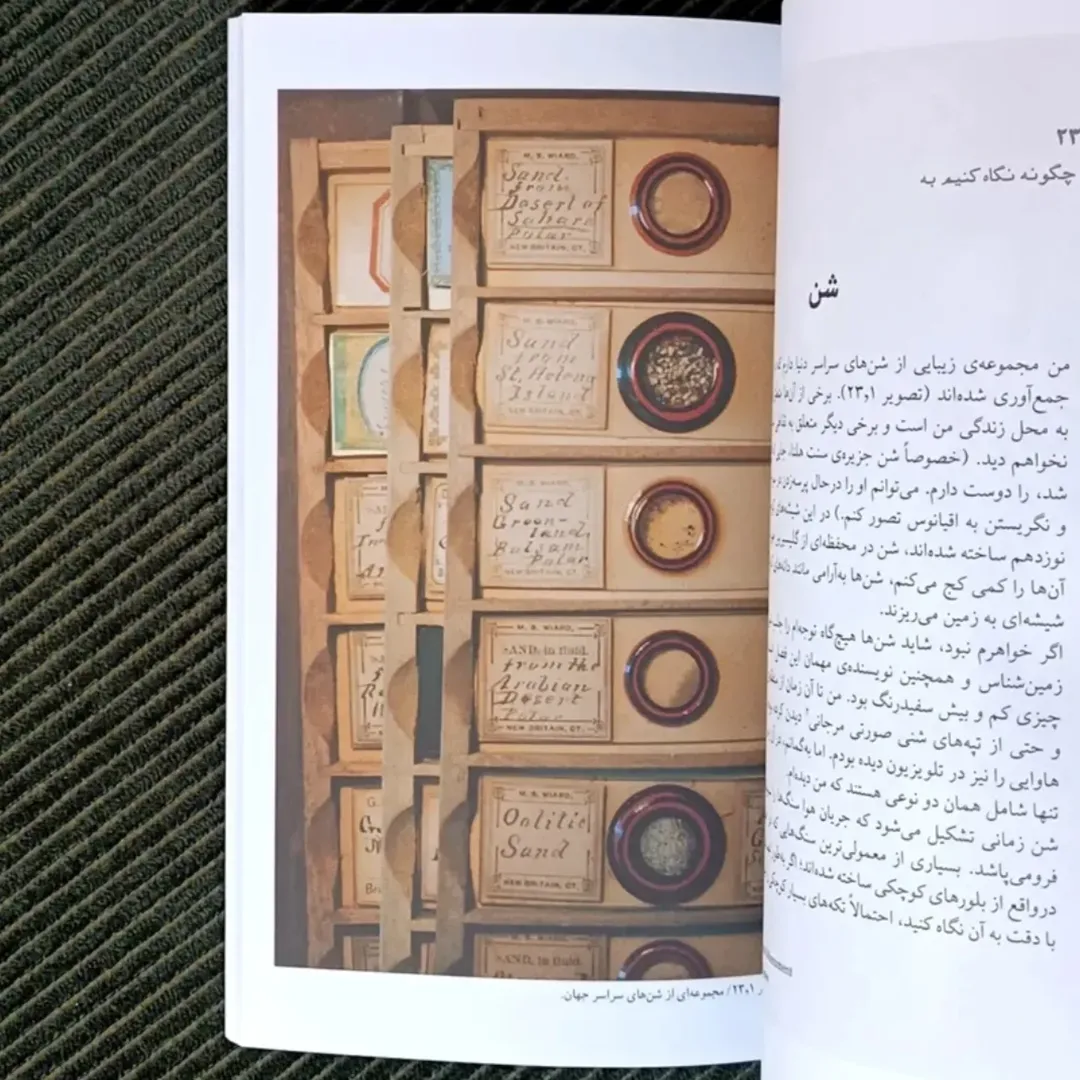 M. S. WIARD,
Sand
from
Desert of
Sahara
Polar
NEW BRITAIN, CT.
M. S. WIARD,
Sand
from
St. Helena
Island
NEW BRITAIN, CT.
M. S. WIARD,
Sand
Green-
land,
Balsam
Polar
NEW BRITAIN, CT.
M. S. WIARD,
SAND, in fluid.
from the
Arabian
Desert
Polar
NEW BRITAIN, CT.
M. S. WIARD,
Oolitic
Sand
NEW BRITAIN, CT.
SAND, in fluid.
۲۳٫۱ / مجموعه‌ای از شن‌های سراسر جهان.
۲۳
چگونه نگاه کنیم به
شن
من مجموعه‌ی زیبایی از شن‌های سراسر دنیا دارم که
جمع‌آوری شده‌اند (تصویر ۲۳٫۱). برخی از آن‌ها
به محل زندگی من است و برخی دیگر متعلق به
نخواهم دید. (خصوصاً شن جزیره‌ی سنت هلنا، جایی
شد، را دوست دارم. می‌توانم او را درحال پرسه‌زدن در
و نگریستن به اقیانوس تصور کنم.) در این شیشه‌های
نوزدهم ساخته شده‌اند، شن در محفظه‌ای از گلیسیرین
آن‌ها را کمی کج می‌کنم، شن‌ها به‌آرامی مانند دانه‌های
شیشه‌ای به زمین می‌ریزند.
اگر خواهرم نبود، شاید شن‌ها هیچ‌گاه توجه‌ام را
زمین‌شناس و همچنین نویسنده‌ی مهمان این فصل
چیزی کم و بیش سفیدرنگ بود. من تا آن زمان از
و حتی از تپه‌های شنی صورتی مرجانی۲ دیدن کرده
هاوایی را نیز در تلویزیون دیده بودم. اما به‌گمانم،
تنها شامل همان دو نوعی هستند که من دیده‌ام.
شن زمانی تشکیل می‌شود که جریان هوا سنگ‌ها را
فرومی‌پاشد. بسیاری از معمولی‌ترین سنگ‌هایی که
درواقع از بلورهای کوچکی ساخته شده‌اند؛ اگر
با دقت به آن نگاه کنید، احتمالاً تکه‌های بسیار کوچکی